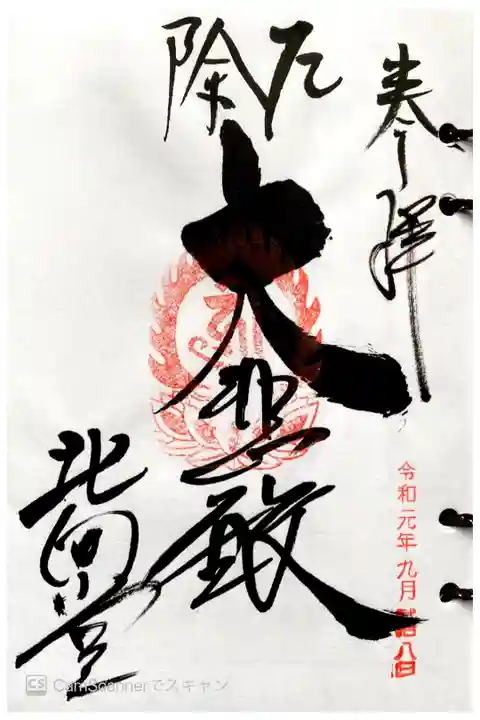 奉拝
令和元年九月 八日
厄除
大悲殿
北向堂
CS CamScannerでスキャン